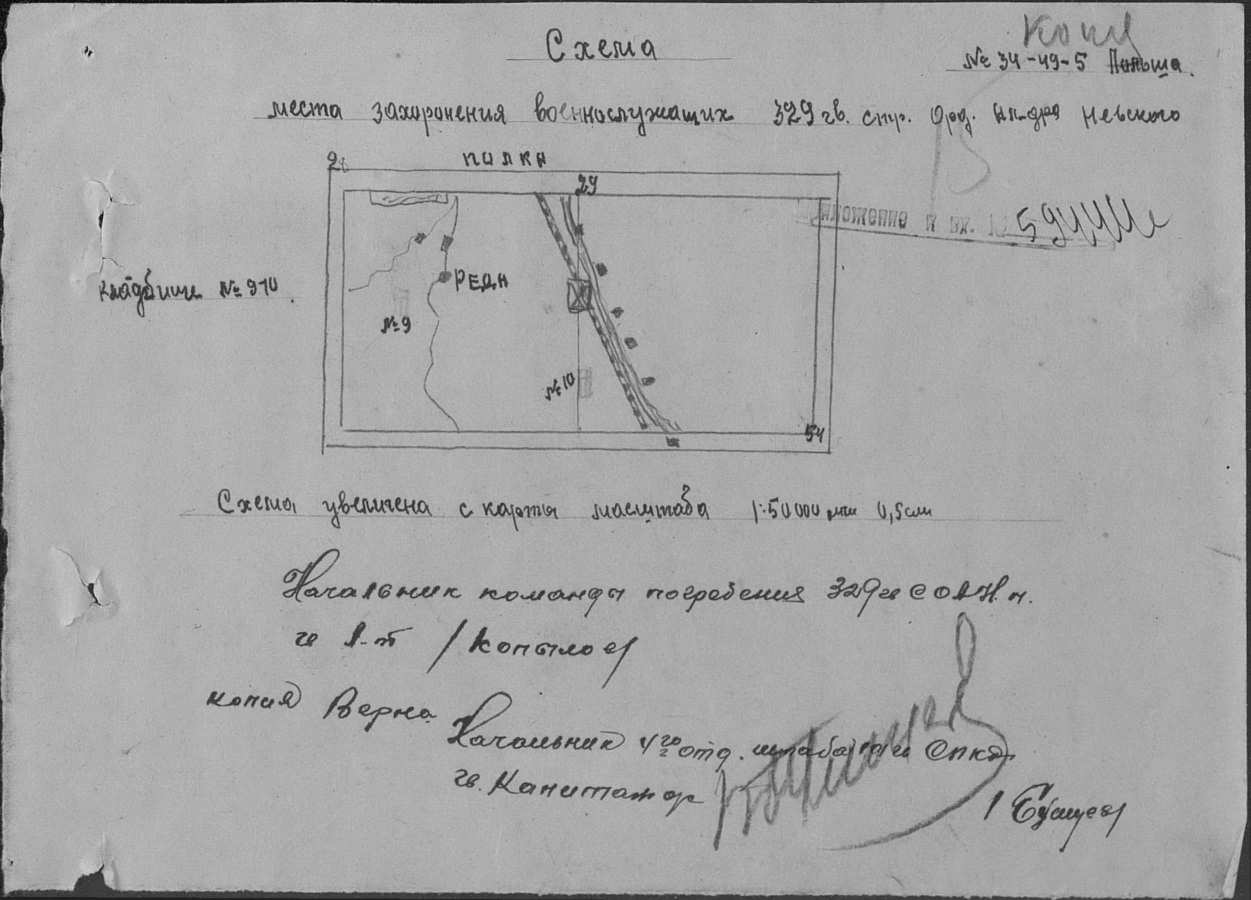 Копия
Схема
№ 34-49-5 Польша.
места захоронения военнослужащих 329 гв. стр. Орд. Ал-дра Невского
полка
28
29
Приложение к вх. №
Кладбище № 9 10
РЕДН
№ 9
№ 10
54
Схема увеличена с карты масштаба 1:50000 0,5 см
Начальник команды погребения 329 гв С О А Н п.
гв л-т / Копылов /
копия Верна
Начальник 4го отд. штаба
гв. Капитан